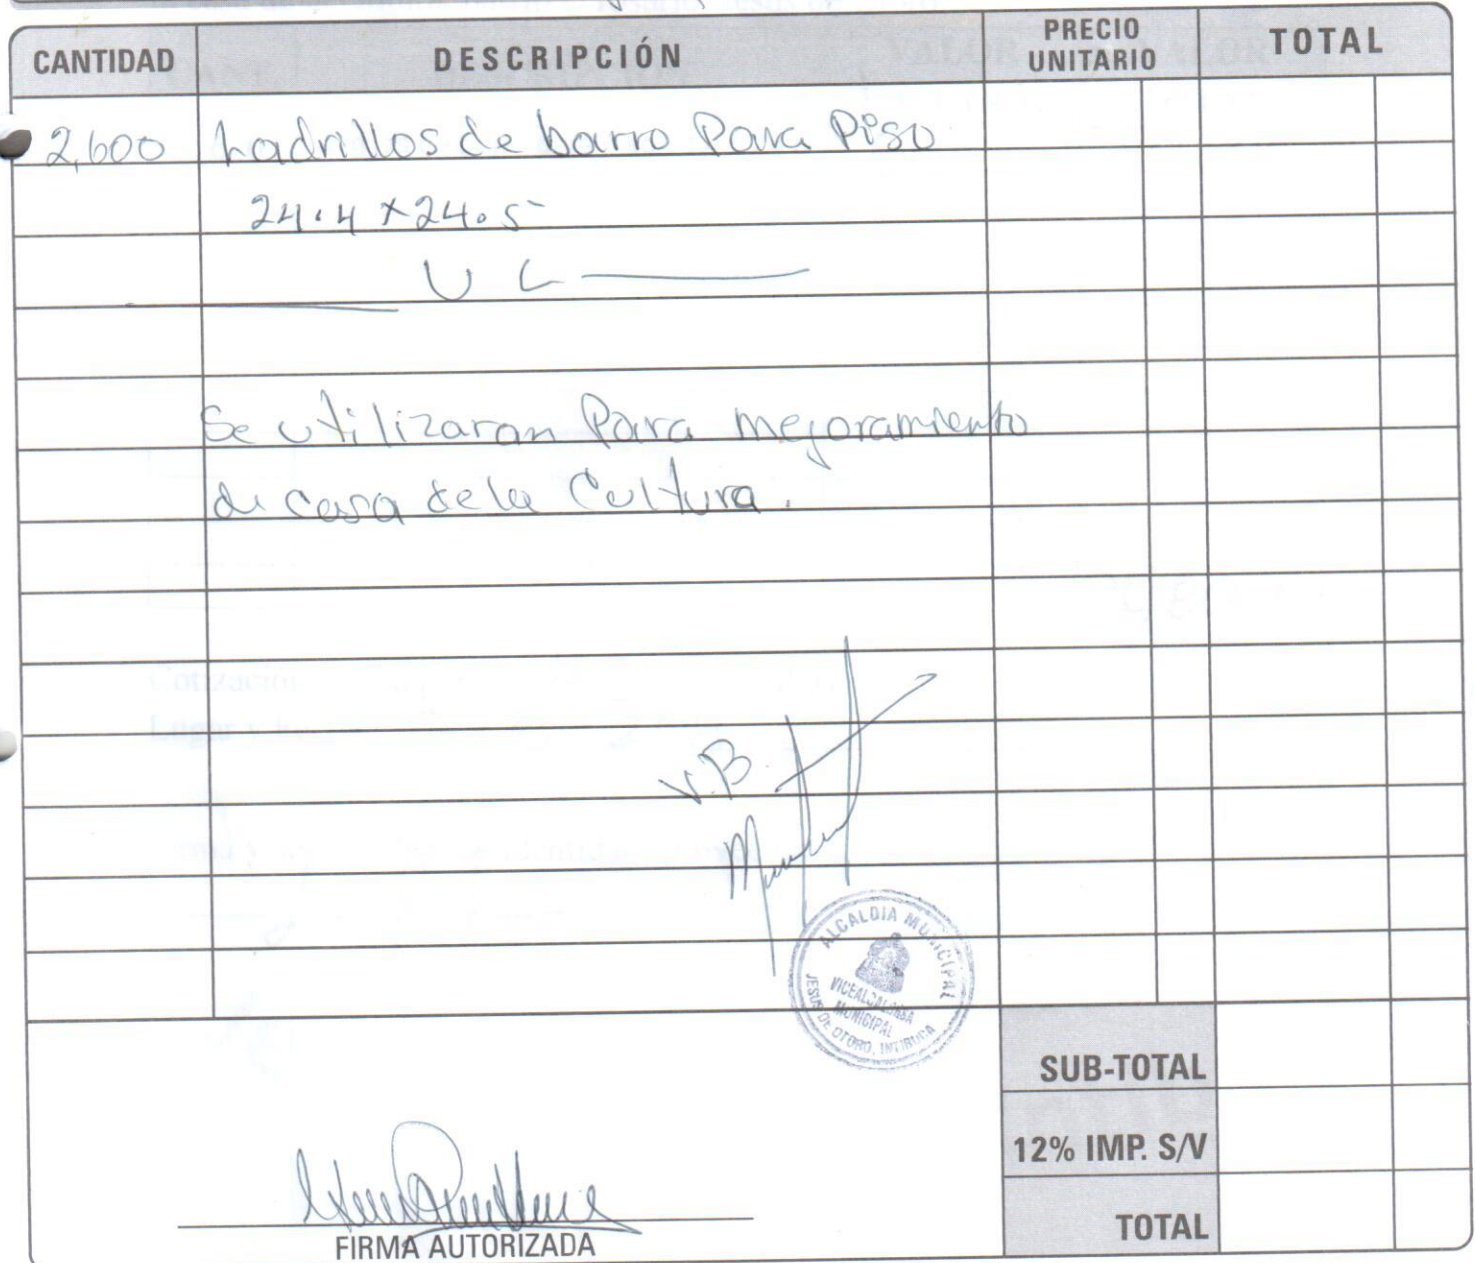 CANTIDAD DESCRIPCIÓN PRECIO UNITARIO TOTAL
2,600 Ladrillos de barro Para Piso
24.4 x 24.5
U L
Se utilizaran Para mejoramiento
de casa de la Cultura.
V.B
ALCALDIA MUNICIPAL
VICEALCALDESA
MUNICIPAL
JESUS DE OTORO, INTIBUCA
SUB-TOTAL
12% IMP. S/V
TOTAL
FIRMA AUTORIZADA